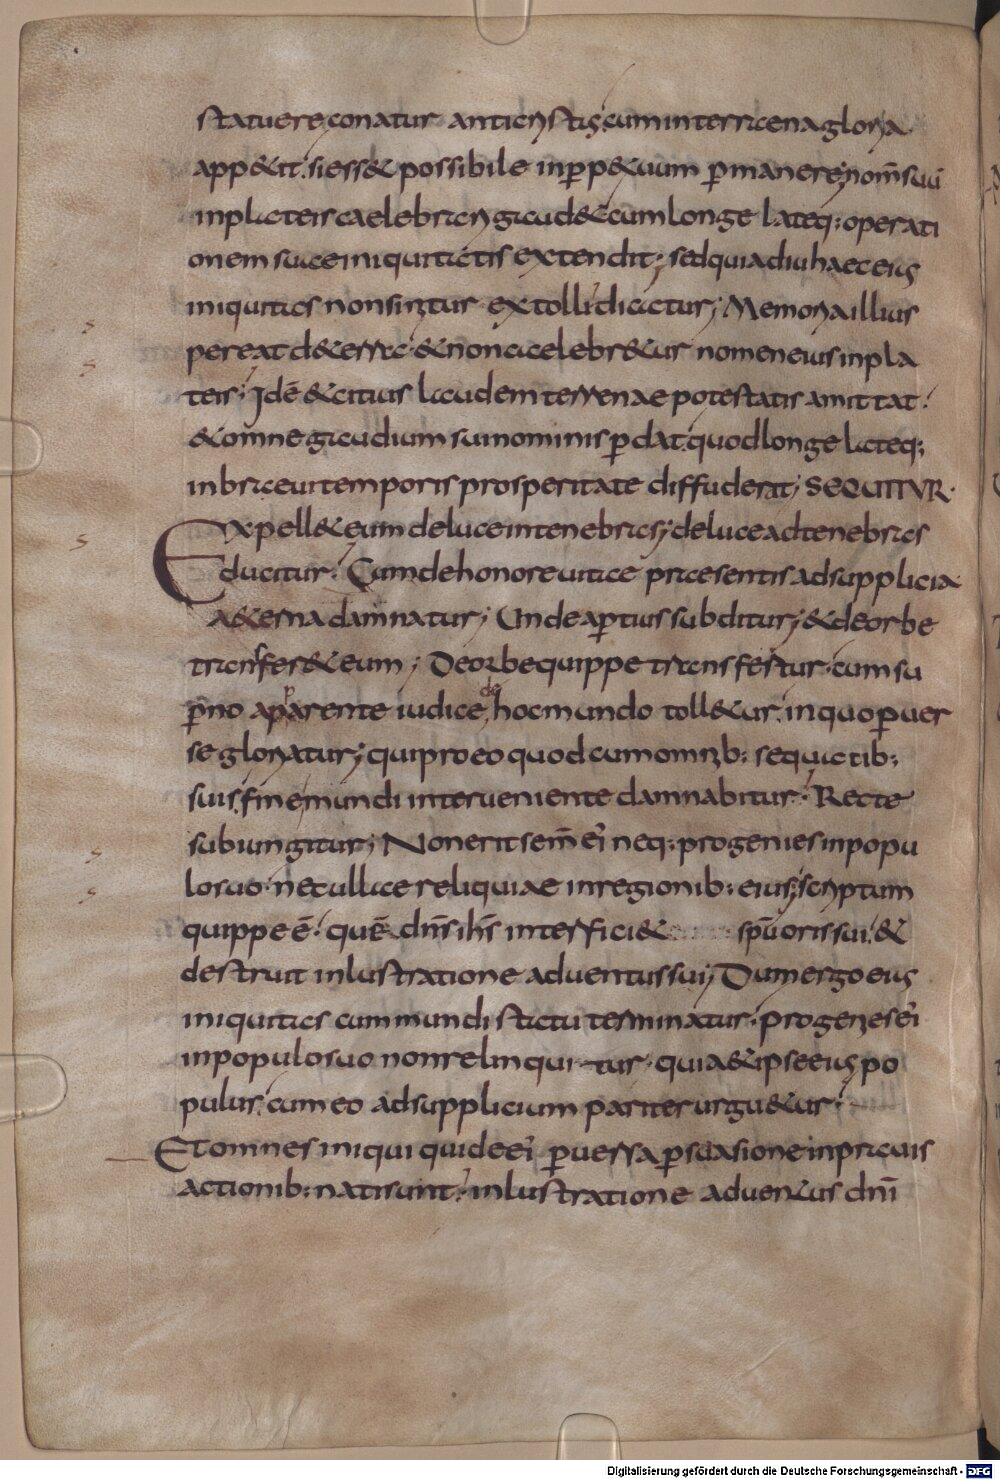 statuere conatur antichristus; cum in terrena gloria
app&it. si ess& possibile inp̄p&uum p̄manere; nom̄ suū
inplateis caelebrari gaud& cum longe lateq; operati
onem suae iniquitatis extendit; sed quia diu haec eius
iniquitas non sinitur extolli dicatur; Memoria illius
pereat de terra & non celebr&ur nomen eius inpla
teis; Idē & citius laudem terrenae potestatis amittat.
& omne gaudium sui nominis p̄dat quod longe lateq;
in breui temporis prosperitate diffuderat; SEQUITUR.
Expell& eum de luce in tenebras; de luce ad tenebras
Educitur. Cum de honore uitae praesentis ad supplicia
a&erna damnatur; Unde ap̄tius subditur; & de orbe
transfer& eum; De orbe quippe transfertur. cum su
p̄no apparente iudice de hoc mundo toll&ur in quo p̄uer
se gloriatur; qui pro eo quod cum omnib; sequacib;
suis fine mundi interueniente damnabitur. Recte
subiungitur; Non erit sem̄ ei neq; progenies in popu
lo suo. nec ullae reliquiae in regionib; eius; scriptum
quippe ē. quē dn̄s ih̄s interfici& sp̄u oris sui. &
destruit inlustratione aduentus sui; Dum ergo eius
iniquitas cum mundi statu terminatur. progenies ei
in populo suo non relinquitur. quia & ipse eius po
pulus. cum eo ad supplicium pariter urgu&ur.
Et omnes iniqui qui de ei p̄uersa p̄suasione in prauis
actionib; nati sunt. inlustratione aduentus dn̄i
Digitalisierung gefördert durch die Deutsche Forschungsgemeinschaft - DFG